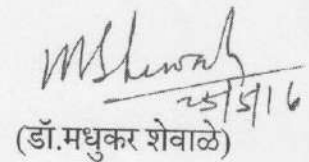 MShewale
25/5/16
(डॉ.मधुकर शेवाळे)